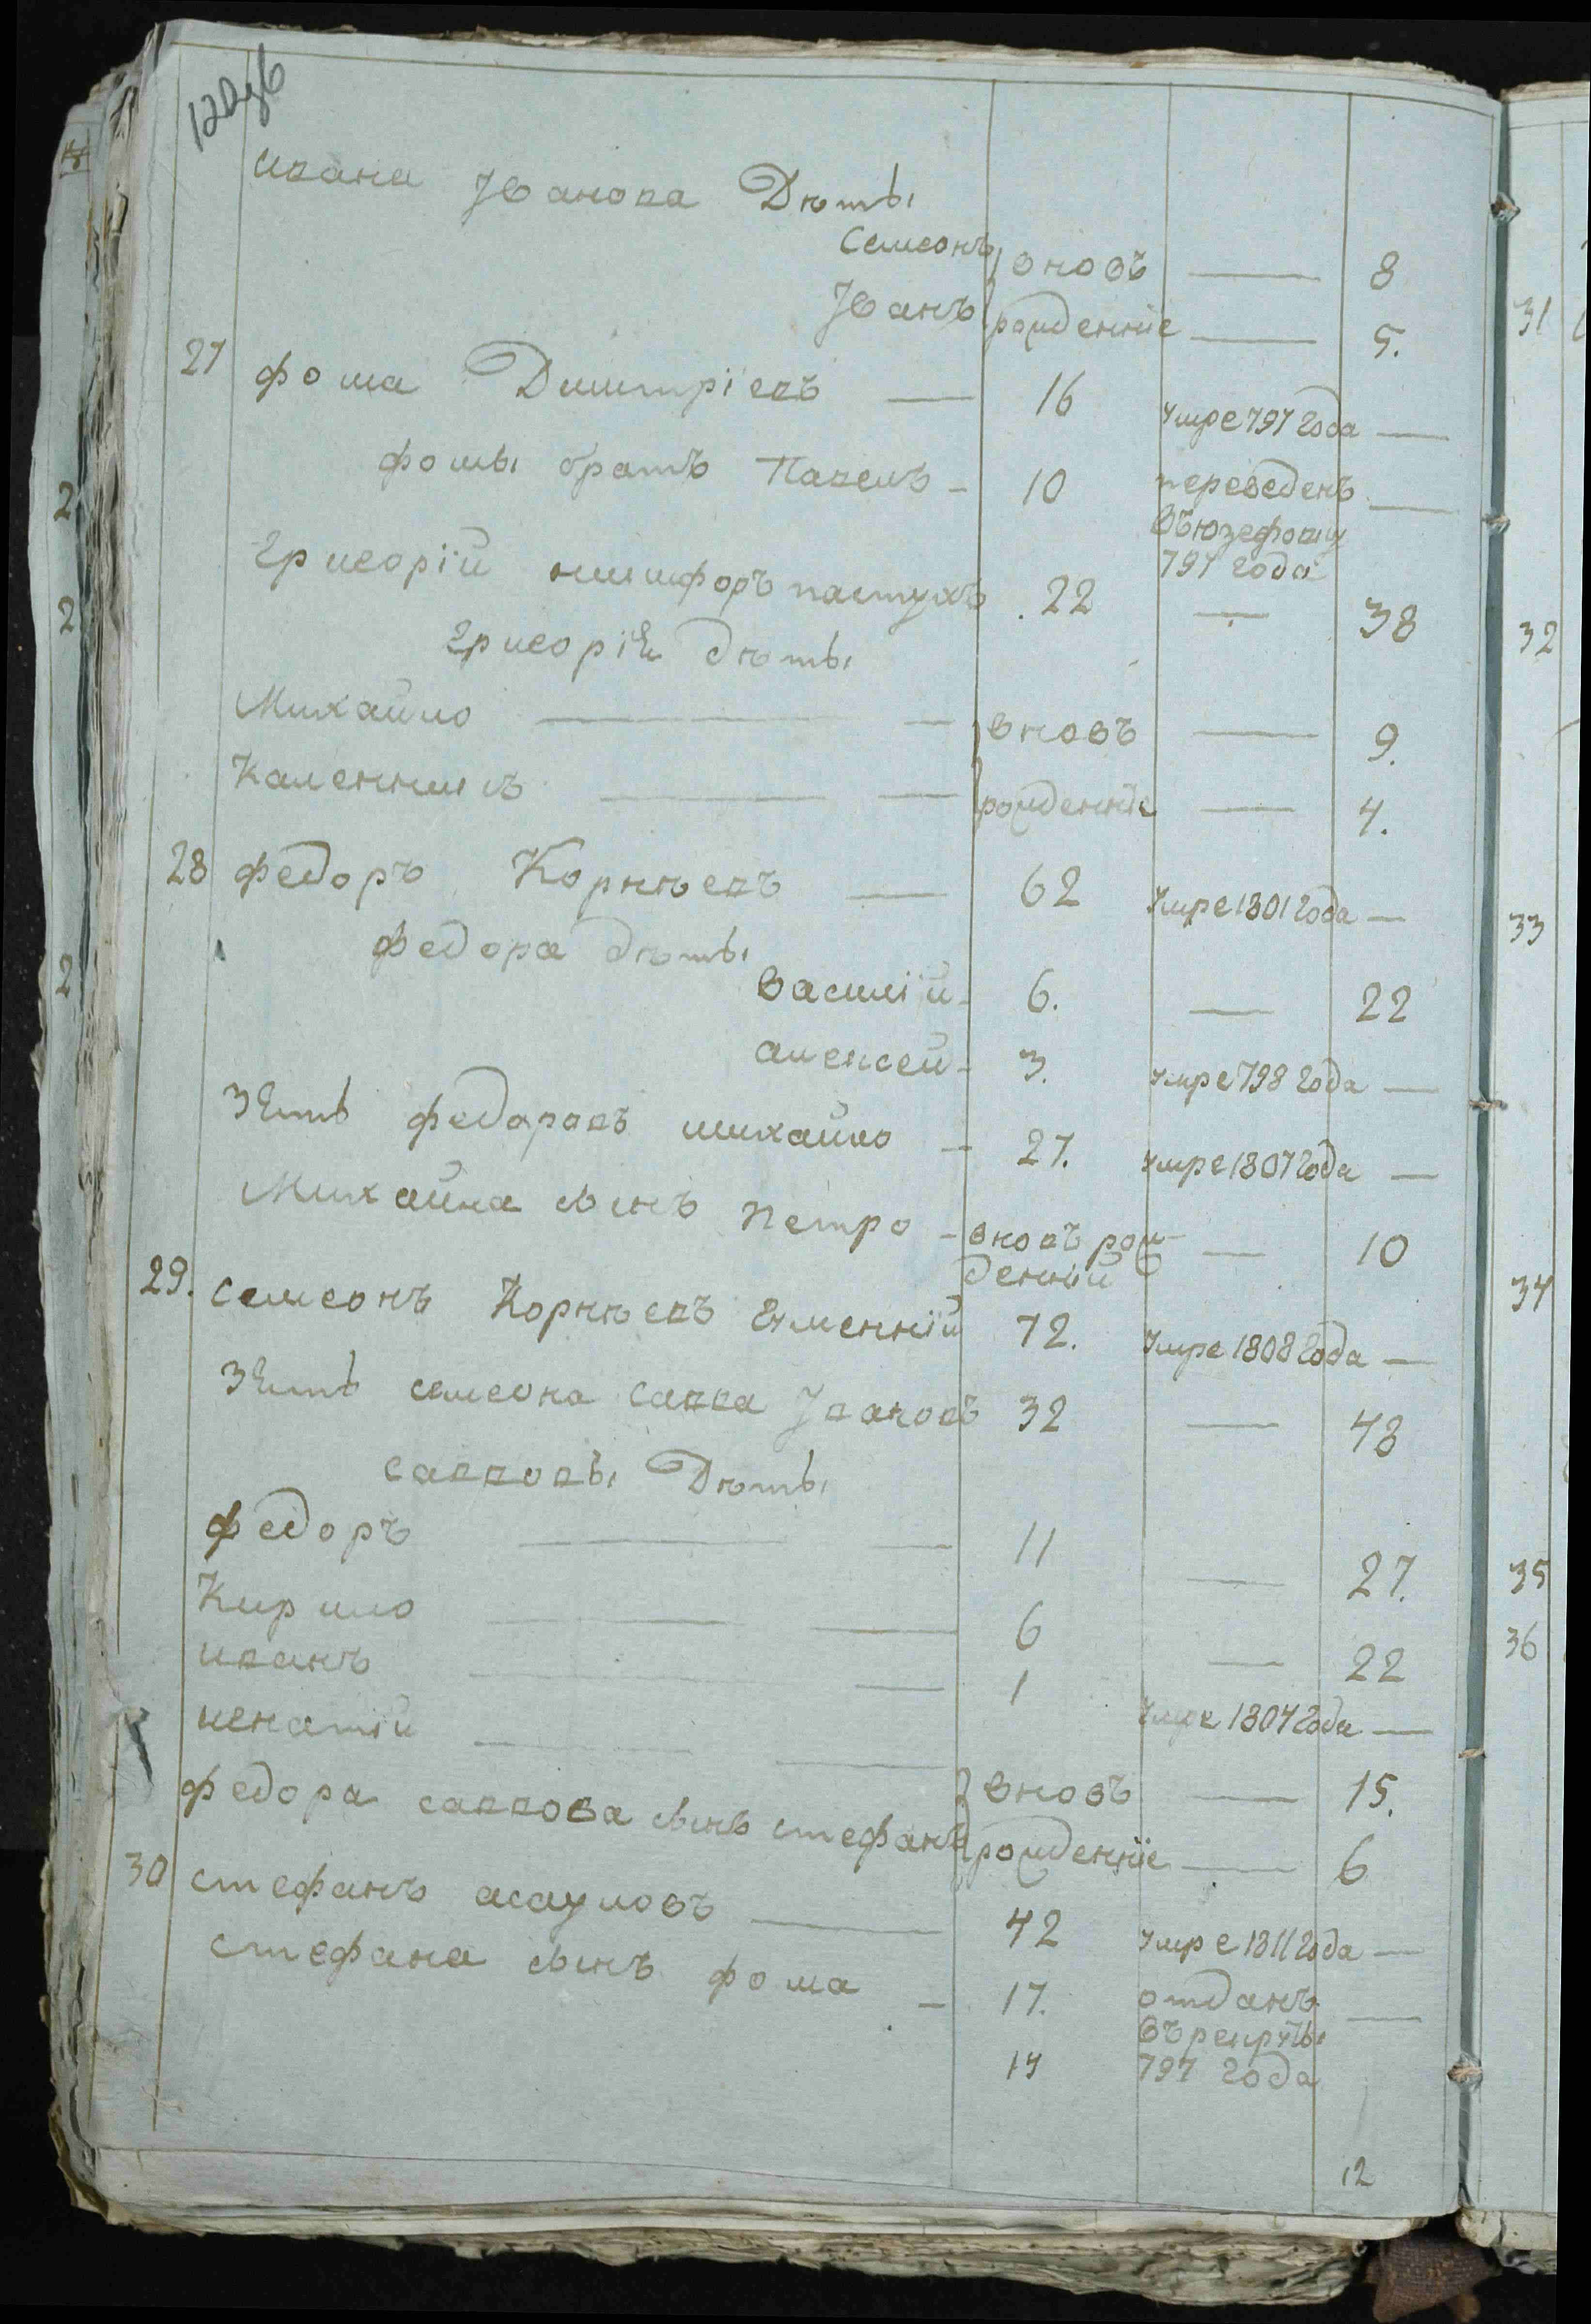 ивана Іванова Дѣты
Семеонъ вновъ — 8
Іванъ рожденніе — 5.
27 фома Дмитріевъ — 16 умре 797 года —
фомы братъ Павелъ — 10 переведенъ —
въ юзефовку
797 года
григорій никифоръ пастухъ 22 — 38
григорія дѣты
Михайло — вновъ — 9.
Каленникъ — рожденніе — 4.
28 федоръ Корнѣевъ — 62 умре 1801 года —
федора дѣты
василій — 6. — 22
алексей — 3. умре 798 года —
зять федоровъ михайло — 27. умре 1807 года —
Михайла сынъ петро — вновъ рож — 10
денній
29. семеонъ Корнѣевъ 72. умре 1808 года —
зять семеона савва Івановъ 32 — 48
саввовы Дѣты
федоръ — 11 — 27.
Кирило — 6 — 22
иванъ — 1 умре 1804 года —
игнатій — вновъ — 15.
федора саввова сынъ стефанъ рожденніе — 6
30 стефанъ асауловъ — 42 умре 1811 года —
стефана сынъ фома — 17. отданъ —
въ рекруты
14 797 года
12
31
32
33
34
35
36